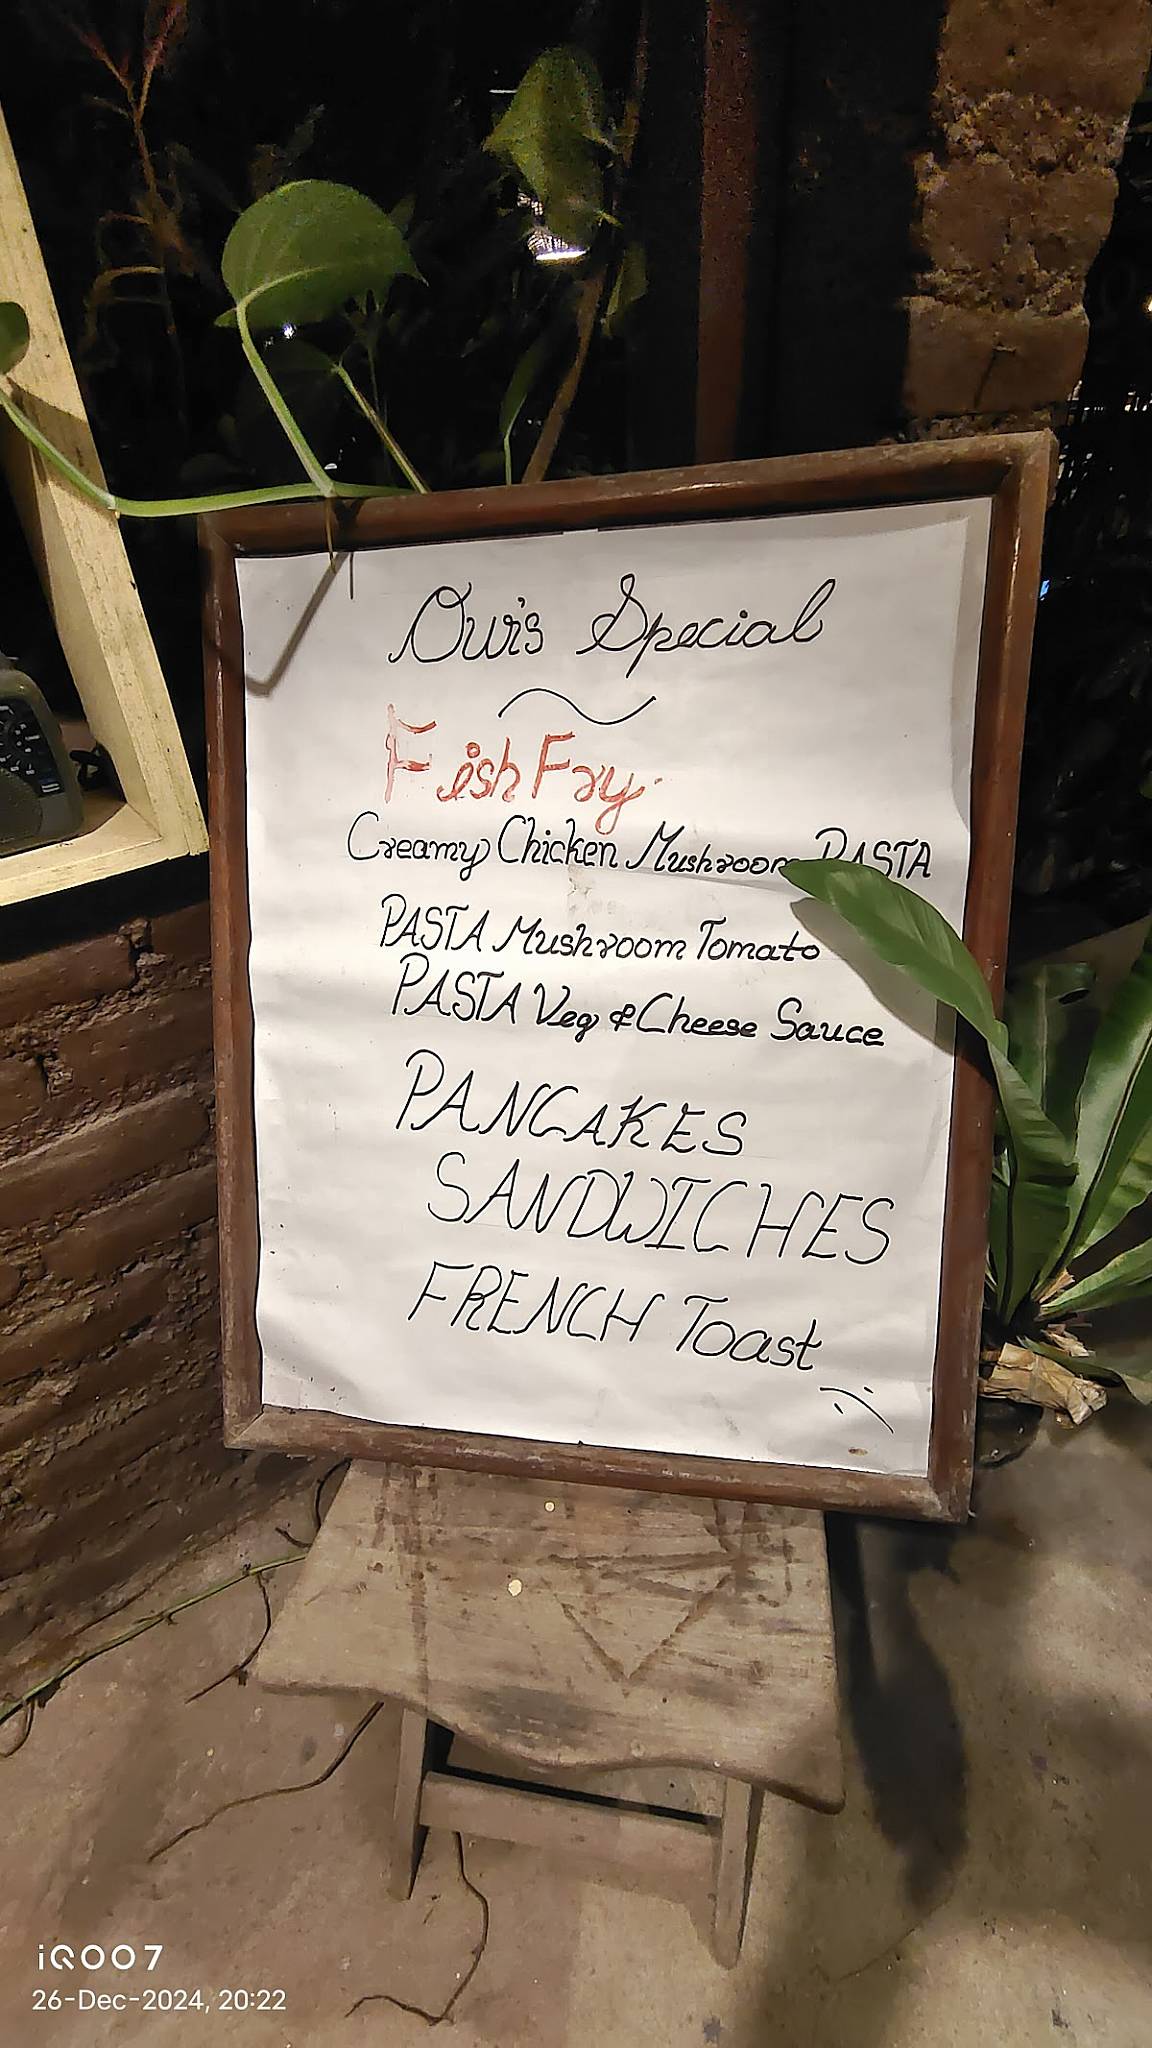 Our's Special
Fish Fry.
Creamy Chicken Mushroom PASTA
PASTA Mushroom Tomato
PASTA Veg & Cheese Sauce
PANCAKES
SANDWICHES
FRENCH Toast
iQOO 7
26-Dec-2024, 20:22